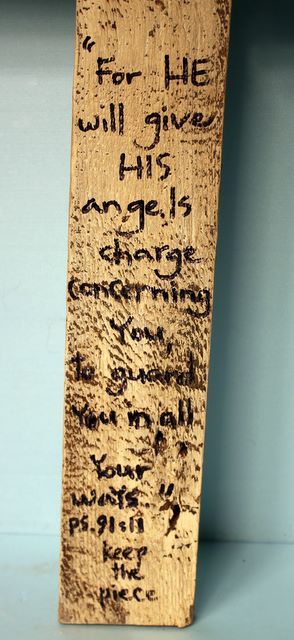 "For HE
will give
HIS
angels
charge
concerning
You,
to guard
You in all
Your
ways.",
ps. 91:11
keep
the
piece